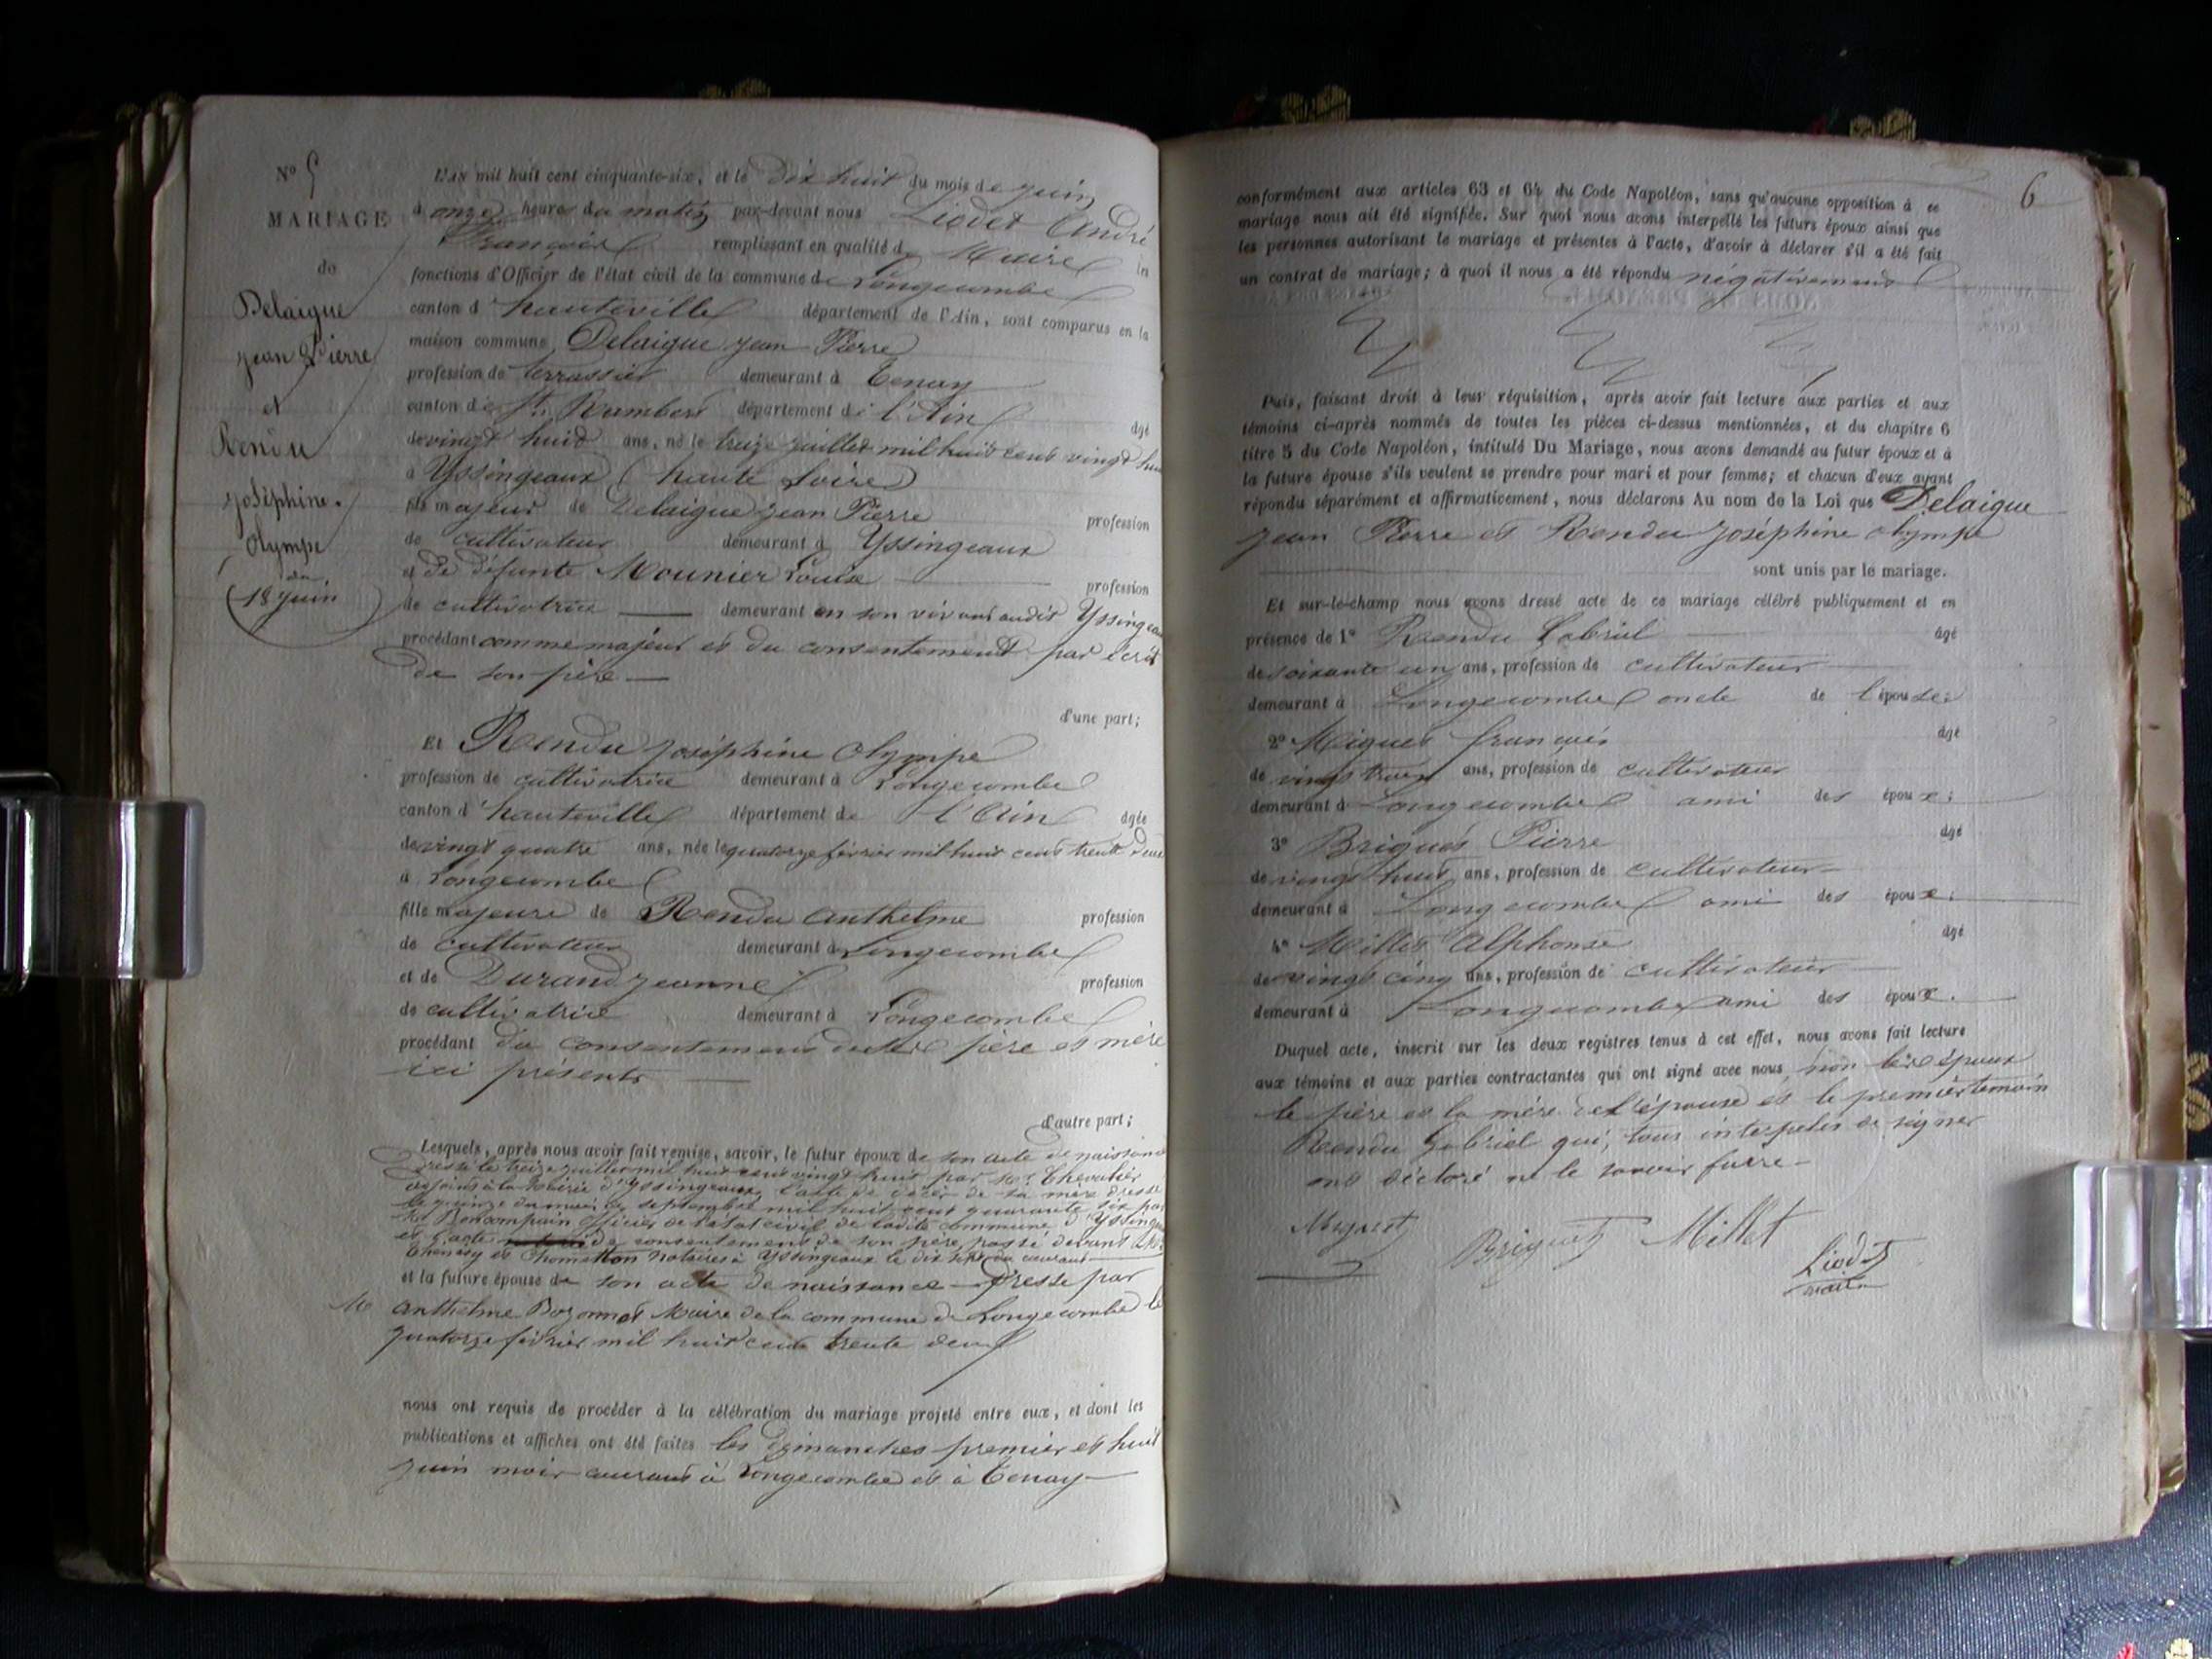 N° 5
MARIAGE
de
Delaigue
Jean Pierre
et
Rendu
Joséphine
Olympe
du
18 juin
L'AN mil huit cent cinquante-six, et le dix huit du mois de juin
à onze heures du matin par-devant nous Liodet André
François remplissant en qualité de Maire les
fonctions d'Officier de l'état civil de la commune de Longecombe
canton d'hauteville département de l'Ain, sont comparus en la
maison commune Delaigue jean Pierre
profession de terrassier demeurant à Tenay
canton de St Rambert département de l'Ain âgé
de vingt huit ans, né le treize juillet mil huit cent vingt huit
à Yssingeaux (haute Loire)
fils majeur de Delaigue jean Pierre profession
de cultivateur demeurant à Yssingeaux
et de défunte Mounier Louise profession
de cultivatrice demeurant en son vivant audit Yssingeaux
procédant comme majeur et du consentement par écrit
de son père
d'une part;
Et Rendu Joséphine Olympe
profession de cultivatrice demeurant à Longecombe
canton d'hauteville département de l'Ain âgée
de vingt quatre ans, née le quatorze février mil huit cent trente deux
à Longecombe
fille majeure de Rendu Anthelme profession
de cultivateur demeurant à Longecombe
et de Durand jeanne profession
de cultivatrice demeurant à Longecombe
procédant du consentement de ses père et mère
ici présents
d'autre part;
Lesquels, après nous avoir fait remise, savoir, le futur époux de son acte de naissance
dressé le treize juillet mil huit cent vingt huit par Mr Chevalier
adjoint à la Mairie d'Yssingeaux, l'acte de décès de sa mère dressé
le quinze du mois de septembre mil huit cent quarante six par
Mr Boncompain officier de l'état civil de ladite commune d'Yssingeaux
et l'acte de consentement de son père passé devant
et Chometton notaires à Yssingeaux le dix du courant
et la future épouse de son acte de naissance dressé par
Mr Anthelme Bozonnet Maire de la commune de Longecombe le
quatorze février mil huit cent trente deux
nous ont requis de procéder à la célébration du mariage projeté entre eux, et dont les
publications et affiches ont été faites les dimanches premier et huit
juin mois courant à Longecombe et à Tenay
6
conformément aux articles 63 et 64 du Code Napoléon, sans qu'aucune opposition à ce
mariage nous ait été signifiée. Sur quoi nous avons interpellé les futurs époux ainsi que
les personnes autorisant le mariage et présentes à l'acte, d'avoir à déclarer s'il a été fait
un contrat de mariage; à quoi il nous a été répondu négativement
Puis, faisant droit à leur réquisition, après avoir fait lecture aux parties et aux
témoins ci-après nommés de toutes les pièces ci-dessus mentionnées, et du chapitre 6
titre 5 du Code Napoléon, intitulé Du Mariage, nous avons demandé au futur époux et à
la future épouse s'ils veulent se prendre pour mari et pour femme; et chacun d'eux ayant
répondu séparément et affirmativement, nous déclarons Au nom de la Loi que Delaigue
jean Pierre et Rendu Joséphine olympe
sont unis par le mariage.
Et sur-le-champ nous avons dressé acte de ce mariage célébré publiquement et en
présence de 1° Rendu Gabriel âgé
de soixante un ans, profession de cultivateur
demeurant à Longecombe oncle de l'épouse;
2° Miguet françois âgé
de vingt trois ans, profession de cultivateur
demeurant à Longecombe ami des époux;
3° Briguet Pierre âgé
de vingt huit ans, profession de cultivateur
demeurant à Longecombe ami des époux;
4° Millet Alphonse âgé
de vingt cinq ans, profession de cultivateur
demeurant à Longecombe ami des époux.
Duquel acte, inscrit sur les deux registres tenus à cet effet, nous avons fait lecture
aux témoins et aux parties contractantes qui ont signé avec nous non les époux
le père et la mère de l'épouse et le premier temoin
Rendu Gabriel qui, tous interpelés de signer
ont déclaré ne le savoir faire
Miguet Briguet Millet Liodet
maire